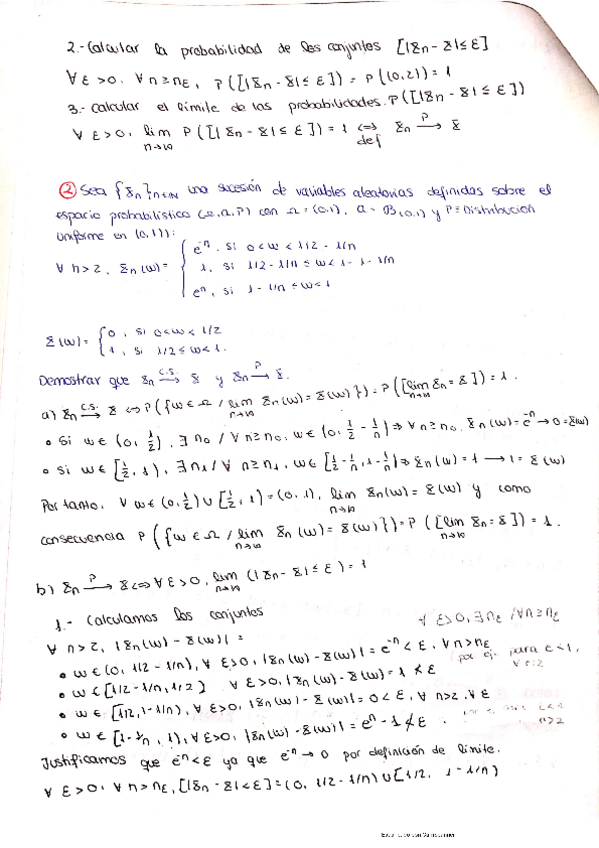 2.- Calcular la probabilidad de los conjuntos [|Xn - X| ≤ ε]
∀ ε > 0, ∀ n ≥ nε, P([|Xn - X| ≤ ε]) = P((0,2)) = 1
3.- Calcular el límite de las probabilidades. P([|Xn - X| ≤ ε])
∀ ε > 0, lim n→∞ P([|Xn - X| ≤ ε]) = 1 ⇔ def Xn →P X
② Sea {Xn}n∈ℕ una sucesión de variables aleatorias definidas sobre el
espacio probabilístico (Ω, a, P) con Ω = (0,1), a = B(0,1) y P ≡ Distribución
uniforme en (0,1)):
∀ n > 2, Xn(w) = { e^-n, si 0 < w < 1/2 - 1/n
1, si 1/2 - 1/n ≤ w < 1 - 1/n
e^n, si 1 - 1/n ≤ w < 1
X(w) = { 0, si 0 < w < 1/2
1, si 1/2 ≤ w < 1.
Demostrar que Xn →c.s. X y Xn →P X.
a) Xn →c.s. X ⇔ P({w ∈ Ω / lim n→∞ Xn(w) = X(w)}) = P([lim n→∞ Xn = X]) = 1.
• Si w ∈ (0, 1/2), ∃ n0 / ∀ n ≥ n0, w ∈ (0, 1/2 - 1/n) ⇒ ∀ n ≥ n0, Xn(w) = e^-n → 0 = X(w)
• Si w ∈ [1/2, 1), ∃ n1 / ∀ n ≥ n1, w ∈ [1/2 - 1/n, 1 - 1/n) ⇒ Xn(w) = 1 → 1 = X(w)
Por tanto, ∀ w ∈ (0, 1/2) ∪ [1/2, 1) = (0,1), lim n→∞ Xn(w) = X(w) y como
consecuencia P({w ∈ Ω / lim n→∞ Xn(w) = X(w)}) = P([lim n→∞ Xn = X]) = 1.
b) Xn →P X ⇔ ∀ ε > 0, lim n→∞ (|Xn - X| ≤ ε) = 1
1.- Calculamos los conjuntos
∀ ε > 0, ∃ nε / ∀ n ≥ nε
∀ n > 2, |Xn(w) - X(w)| =
• w ∈ (0, 1/2 - 1/n), ∀ ε > 0, |Xn(w) - X(w)| = e^-n < ε, ∀ n > nε
por ej. para ε < 1,
• w ∈ [1/2 - 1/n, 1/2) ∀ ε > 0, |Xn(w) - X(w)| = 1 ≮ ε
• w ∈ [1/2, 1 - 1/n), ∀ ε > 0, |Xn(w) - X(w)| = 0 < ε, ∀ n > 2, ∀ ε
• w ∈ [1 - 1/n, 1), ∀ ε > 0, |Xn(w) - X(w)| = e^n - 1 ≮ ε.
n > 2
Justificamos que e^-n < ε ya que e^-n → 0 por definición de límite.
∀ ε > 0, ∀ n > nε, [|Xn - X| < ε] = (0, 1/2 - 1/n) ∪ [1/2, 1 - 1/n)